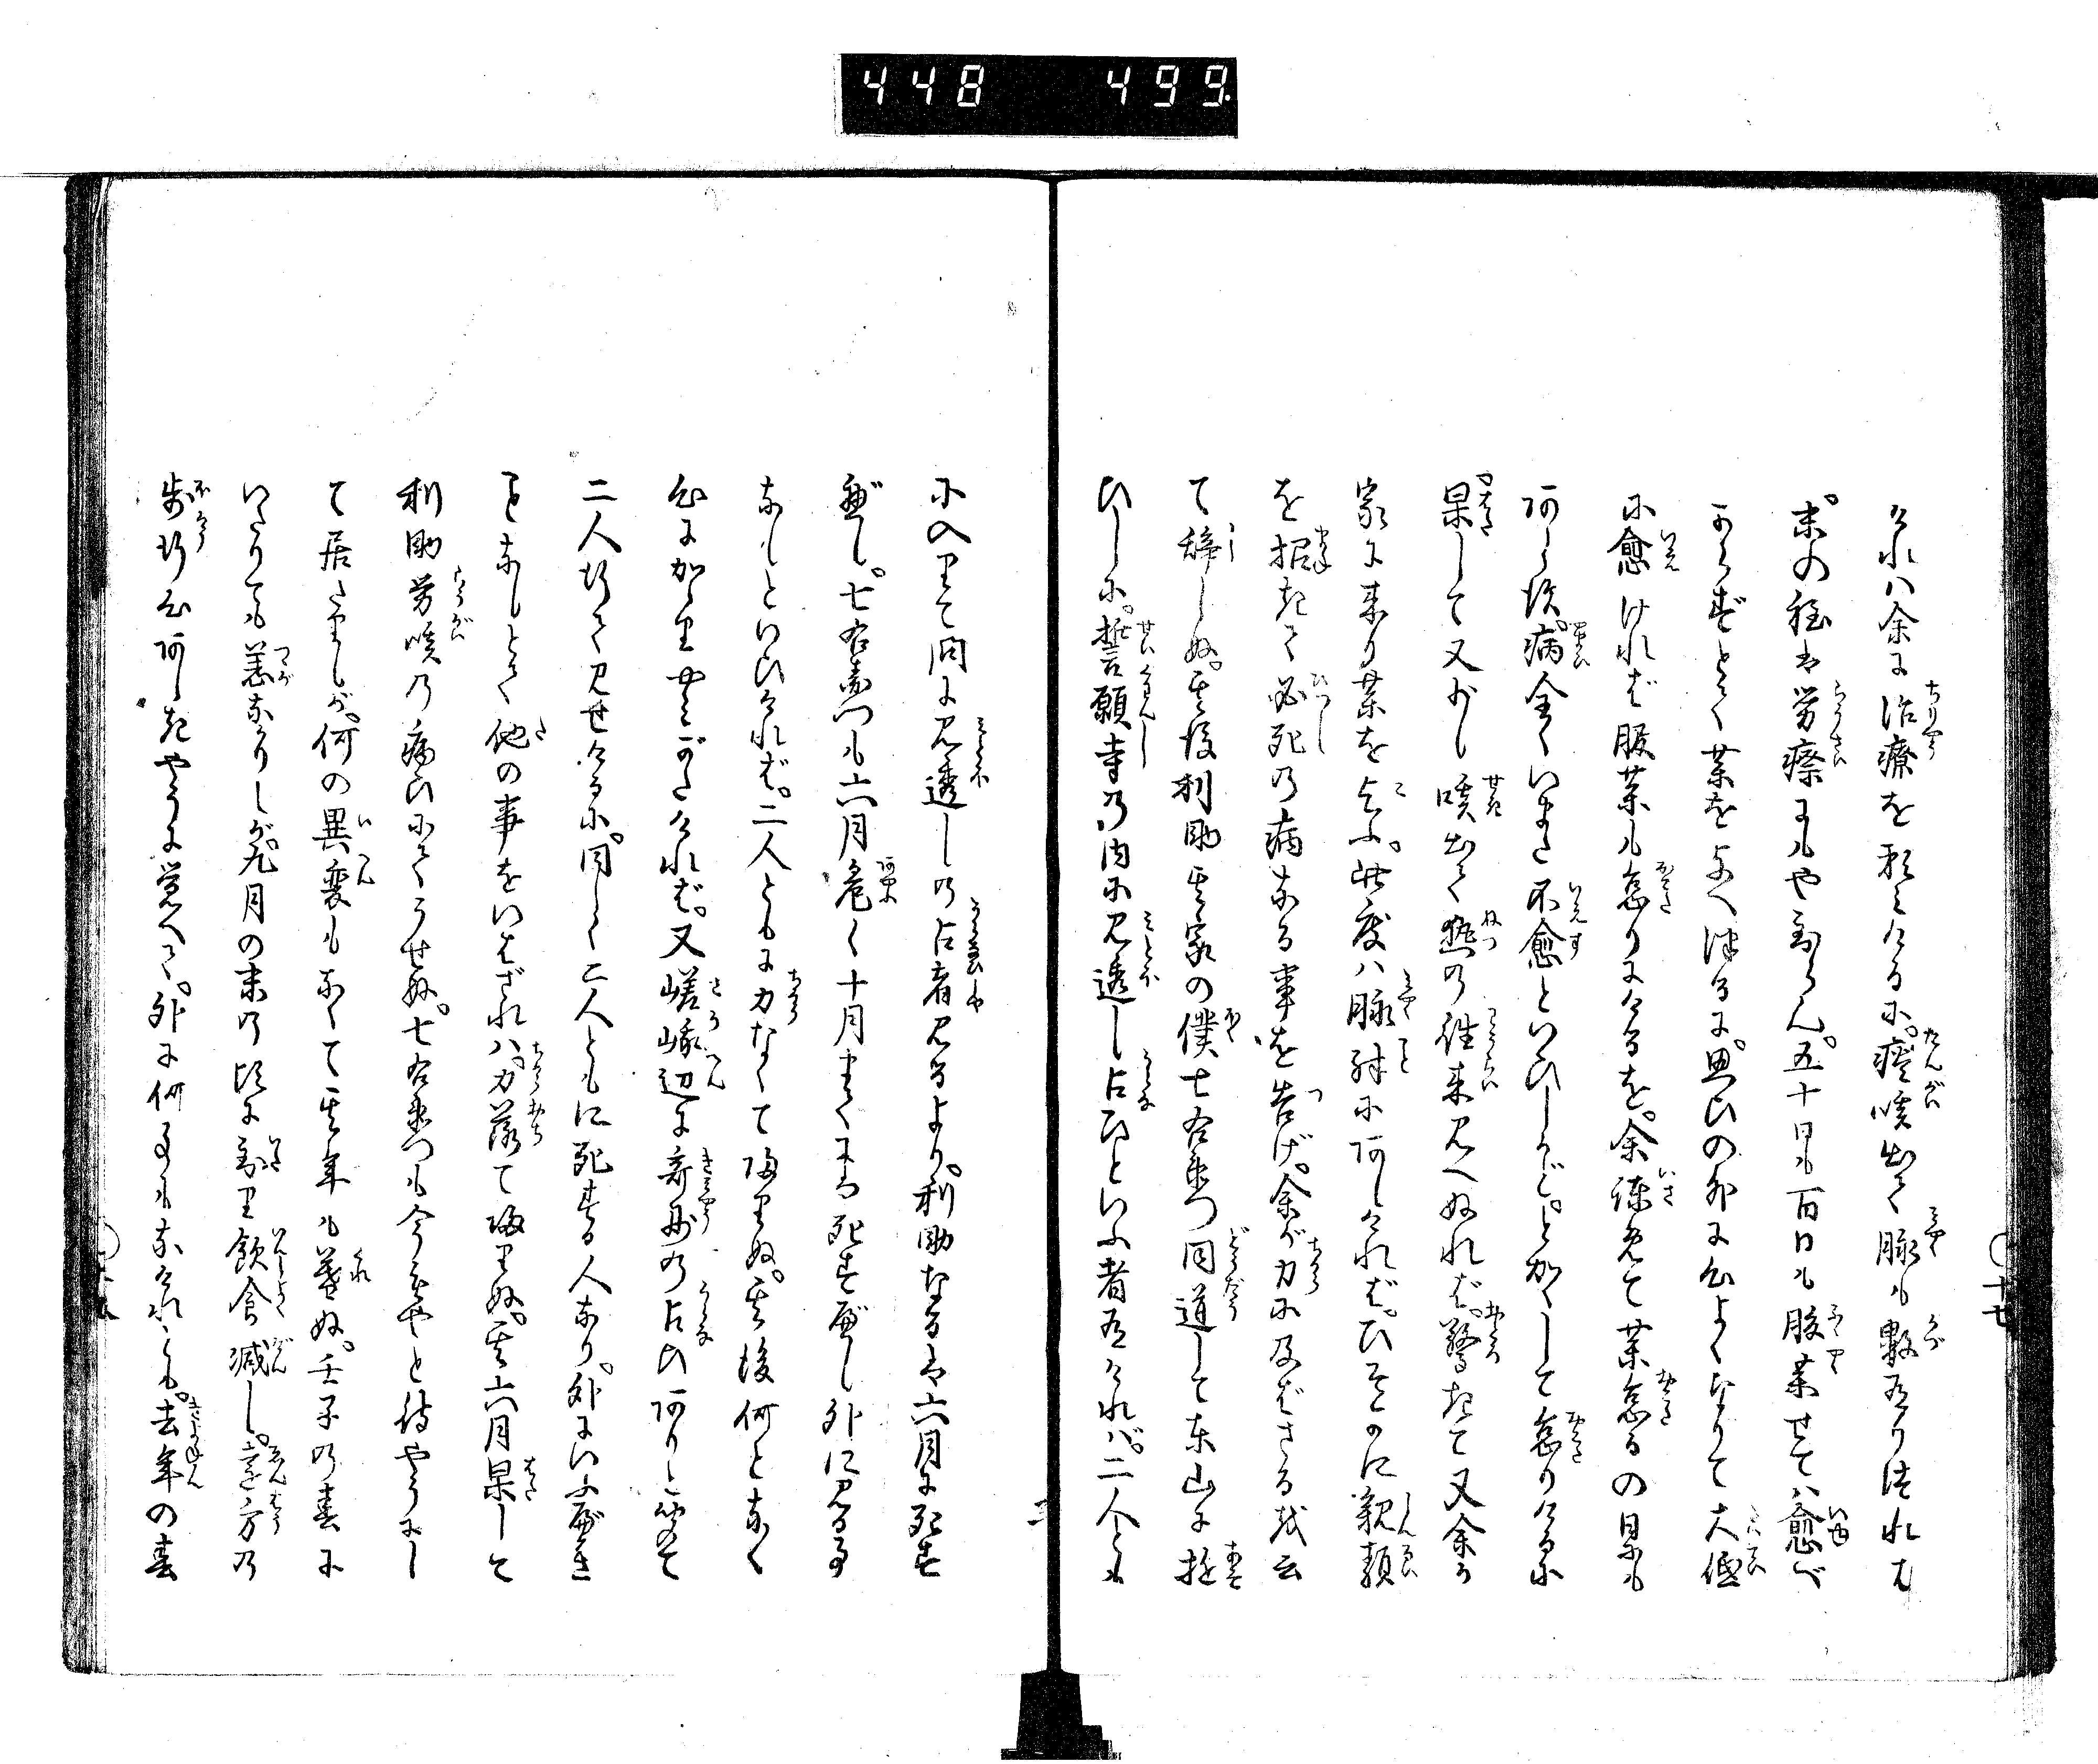 448 499
けれハ余に治療を頼ミけるに。痰咳出て脉も数有りけれは
末の程は労瘵にもや至らん。五十日も百日も服薬せてハ愈べ
からずとて薬を与へけるに。思ひの外に心よくなりて大低
に愈けれど服薬も怠りにけるを。余諫めて薬怠るの日も
ありき。病全くいまた不愈といひしかど。とかくして怠りけるに
果して又少し咳出て熱の往来見へぬれど。驚きて又余か
家に来り薬を乞ふ。此度ハ脉殊にあしけれど。ひそかに親類
を招きて必死の病なる事を告げ。余が力に及ばざる故云
て辞しぬ。其後利助其家の僕七右衛門同道して東山に遊
ひしに。誓願寺の内に見透し占ひといふ者有けれバ。二人とも
に入りて問に見透しの占者見るより。利助なるは六月に死す
べし。七右衛門も六月危く十月までには死すべし外に見る事
なしといひけれど。二人ともに力なくて帰りぬ。其後何となく
心にかゝりやミがたけれど。又嵯峨辺に奇妙の占ひありと聞て
二人行て見せけるに。同しく二人ともに死する人なり。外にいふべき
ことなしとて他の事をいはざれハ。力落て帰りぬ。其六月果して
利助労咳の病ひにてうせぬ。七右衛門も今もやと待やうにし
て居たりしが。何の異変もなくて其年も暮ぬ。壬子の春に
いたりても恙なかりしが。九月の末の頃に至り飲食減し。遠方の
歩行心あしきやうに覚へて。外に何事もなけれとも。去年の春
十七